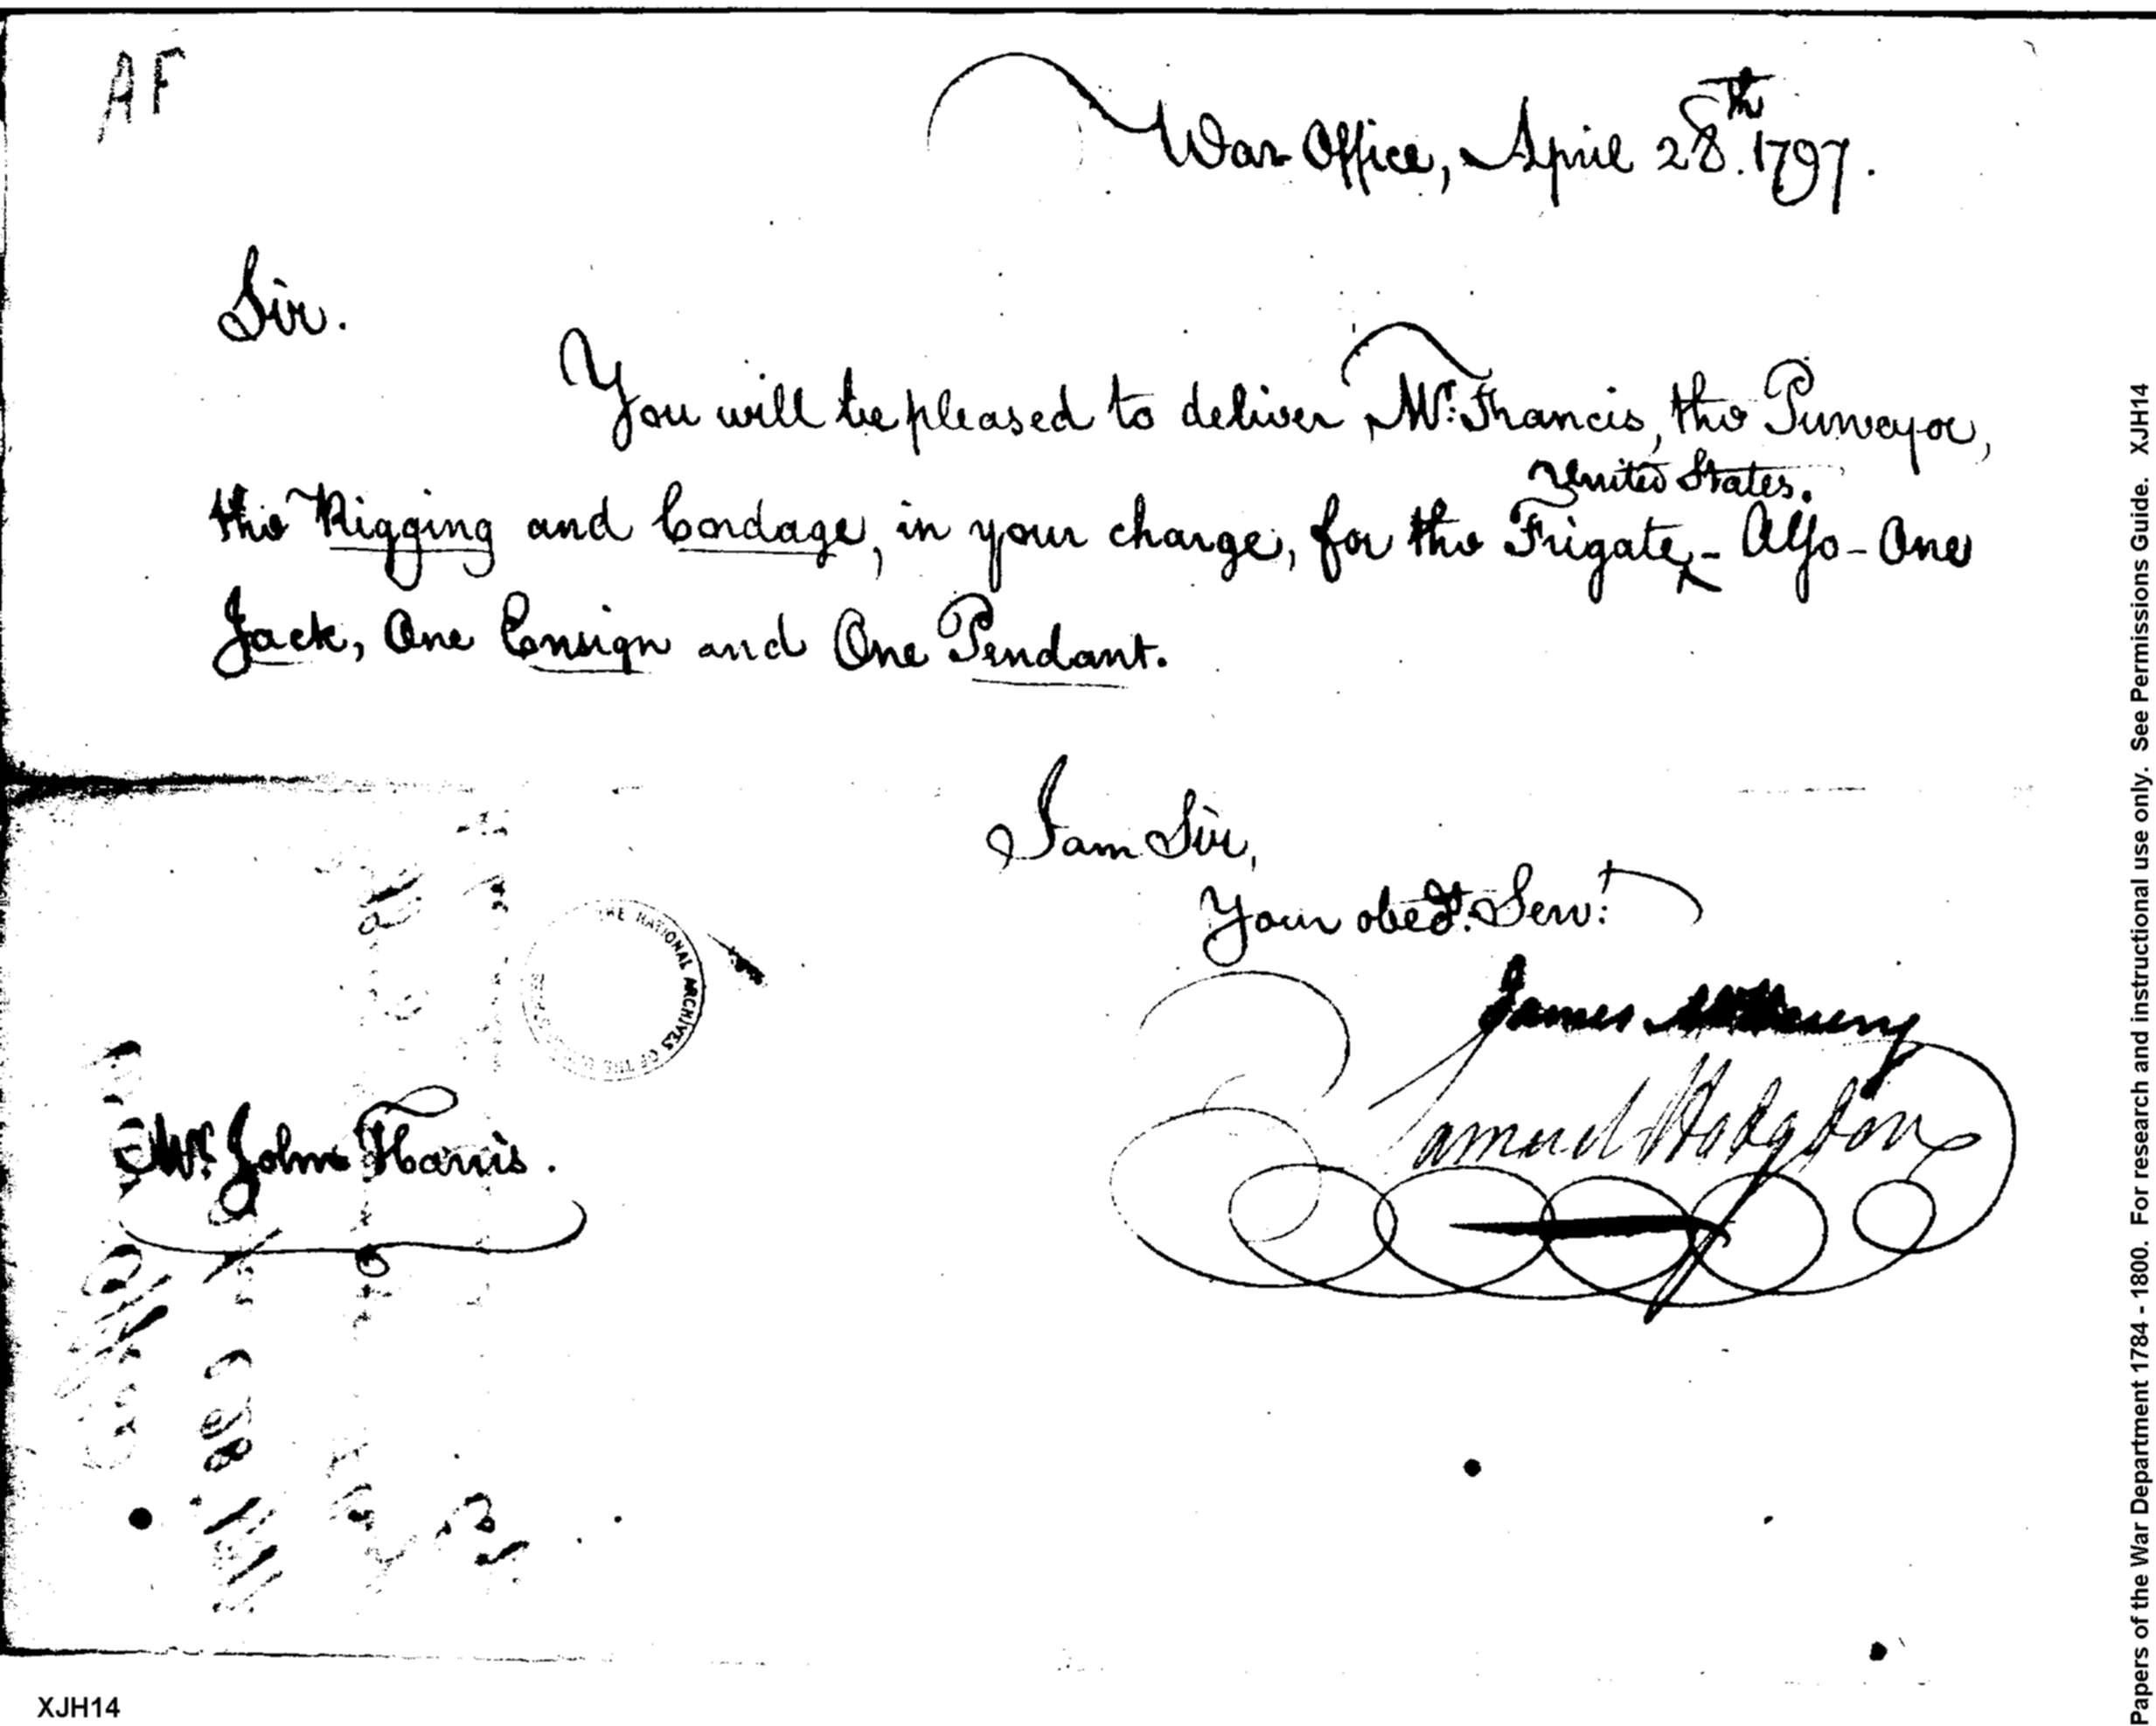 AF
War Office, April 28th. 1797.
Sir.
You will be pleased to deliver Mr. Francis, the Purveyor,
United States.
the Rigging and Cordage, in your charge, for the Frigate ^ - Also - One
Jack, One Ensign and One Pendant.
I am Sir,
Your obedt. Servt.
James McHenry
Samuel Hodgdon
THE NATIONAL ARCHIVES OF THE
Mr. John Harris.
XJH14
Papers of the War Department 1784 - 1800. For research and instructional use only. See Permissions Guide. XJH14